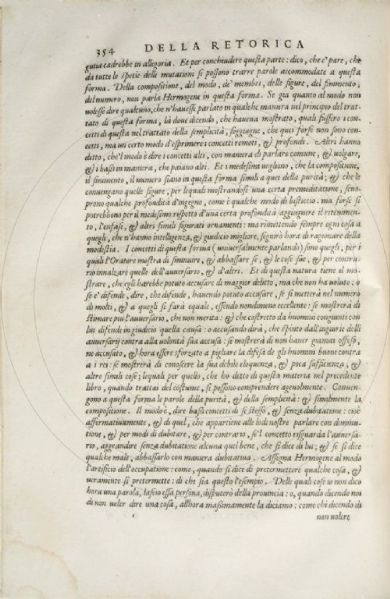 354 DELLA RETORICA
gutia cadrebbe in allegoria. Et per conchiudere questa parte: dico, che è pare, che
da tutte le spetie delle mutationi si possono trarre parole accommodate a questa
forma. Della compositione, del modo, de' membri, delle figure, del finimento,
del numero, non parla Hermogene in questa forma. Se già quanto al modo non
volesse dire qualcuno, che n'havesse parlato in qualche maniera nel principio del trat-
tato di questa forma, là dove dicendo, che haveva mostrato, quali fussero i con-
cetti di questa nel trattato della semplicità, soggiugne, che qui forse non sono con-
cetti, ma un certo modo d'esprimere i concetti remoti, & profondi. Altri hanno
ditto, che'l modo è dire i concetti alti, con maniera di parlare comune, & volgare,
& i bassi in maniera, che paiano alti. Et i medesimi vogliono, che la compositione,
il finimento, il numero siano in questa forma simili a quei della purità; & che le
convengano quelle figure, per lequali mostrandosi una certa premeditatione, sene-
prono qualche profondità d'ingegno, come è qualche modo di bisticcio. ma forse si
potrebbono per il medesimo rispetto d'una certa profondità aggiugnere il ritenimento,
l'enfase, & altri simili figurati ornamenti: ma rimettendo sempre ogni cosa a
quegli, che n'hanno intelligenza, & giudicio migliore, seguirò hora di ragionare della
modestia. I concetti di questa forma (universalmente parlando) sono quegli, per i
quali l'Oratore mostra di sminuire, & abbassare se, & le cose sue, & per contra-
rio innalzare quelle dell'avversario, & d'altri. Et di questa natura tiene il mo-
strare, che egli harebbe potuto accusare di maggior delitto, ma che non ha voluto: o
se e' difende, dire, che difende, havendo potuto accusare, se si metterà nel numero
di molti, & a quegli si farà equale, essendo nondimeno eccellente: se mostrerà di
stimare più l'avversario, che non merita: & che costretto da huomini congiunti con
lui difende in giudicio quella causa: o accusando dirà, che spinto dall'ingiurie delli
avversarij contra alla volontà sua accusa: se mostrerà di non haver giamai offeso,
ne accusato, & hora essere sforzato a pigliare la difesa de gli huomini buoni contra
a i rei: se mostrerà di conoscere la sua debile eloquenza, & poca sufficienza, &
altre simili cose; lequali per quello, che ho ditto di questa materia nel precedente
libro, quando trattai del costume, si possono comprendere agevolmente. Conven-
gono a questa forma le parole della purità, & della semplicità: & similmente la
compositione. Il modo è, dire bassi concetti di se stesso, & senza dubitatione: cioè
affermativamente, & di quel, che appartiene alle lodi nostre parlare con diminu-
tione, & per modo di dubitare. & per contrario, se'l concetto risguarda l'avversa-
rio, aggrandire senza dubitatione alcuna quel bene, che si dice di lui; & se si dice
qualche male, abbassarlo con maniera dubitativa. Assegna Hermogene al modo
l'artificio dell'occupatione: come, quando si dice di pretermettere qualche cosa, &
veramente si pretermette: di che sia questo l'esempio. Delle quali cose io non dico
hora una parola, lascio essa persona, disputerò della provincia: o, quando dicendo noi
di non voler dire una cosa, allhora massimamente la diciamo: come chi dicendo di
non volere